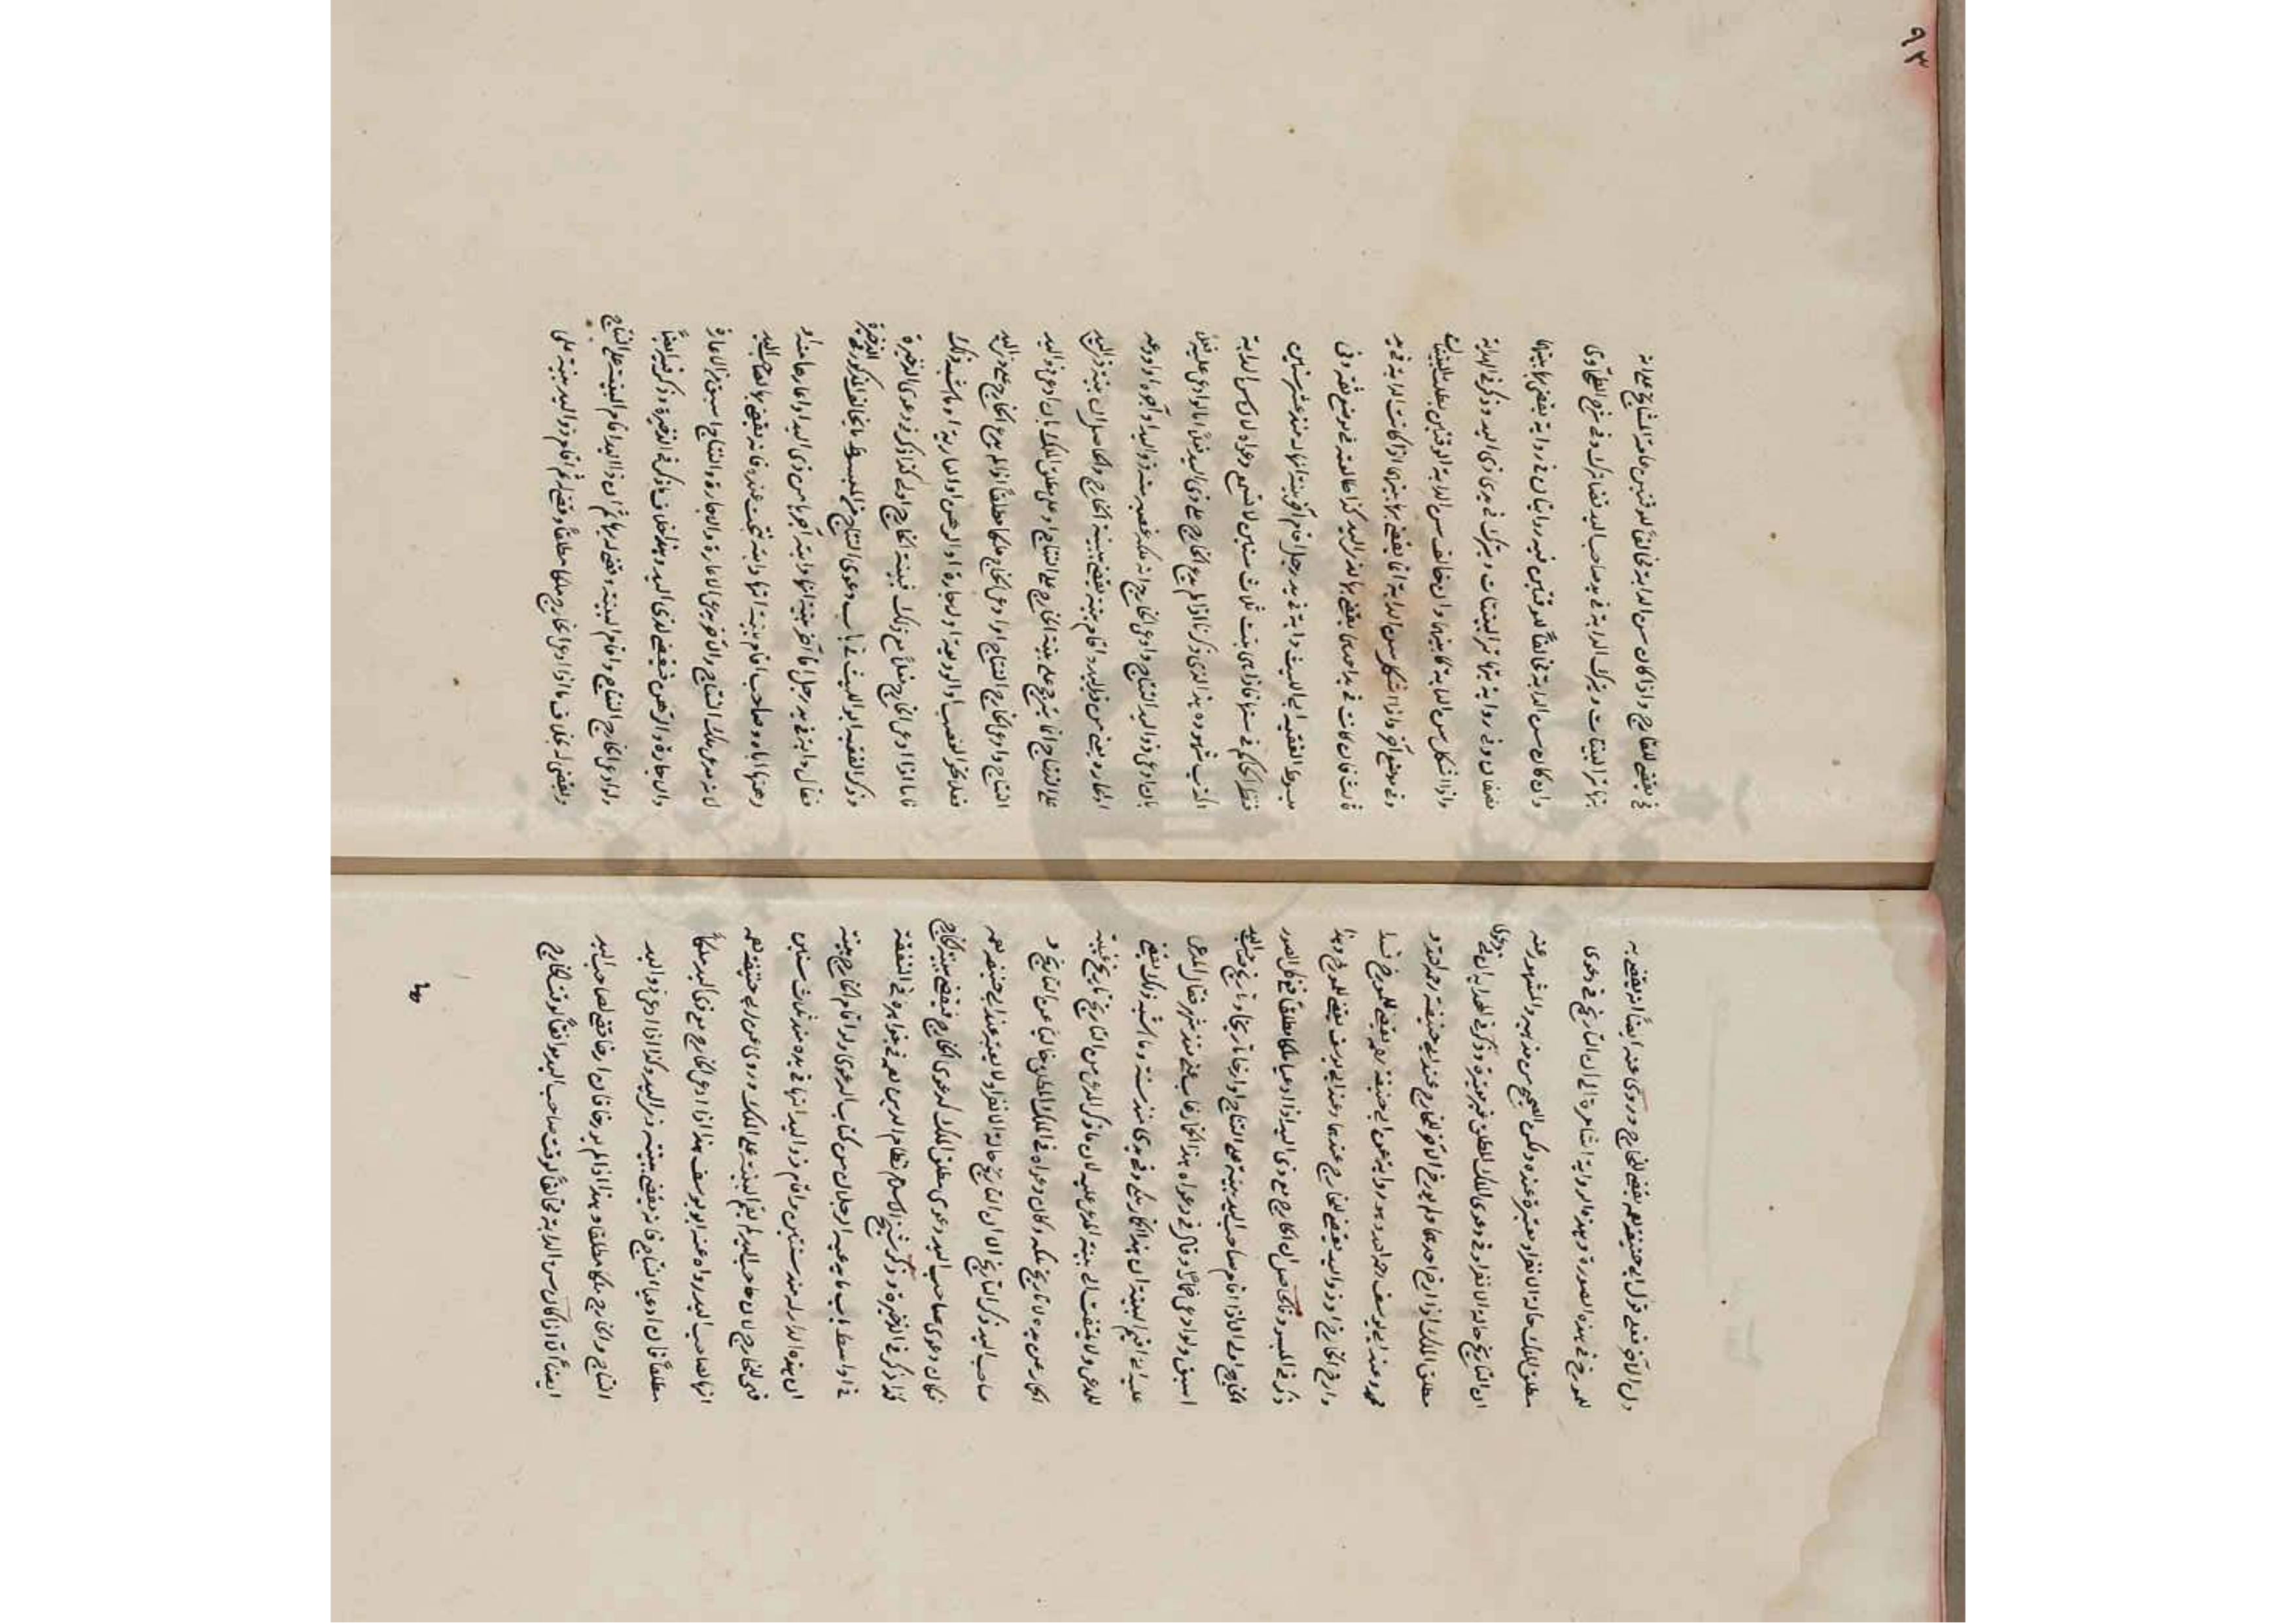 ٩٣
دل الآخر فعلى قول ابي حنيفة رحمه يقضى للخارج وروى عنه ايضا انه يقضى به
للمورخ في هذه الصورة وهذه الرواية اشارة الى ان التاريخ في دعوى
مطلق الملك حالة الانفراد معتبرة عنده ولكن الصحيح من مذهبه والمشهور عنه
ان التاريخ حالة الانفراد في دعوى الملك المطلق غير معتبرة وذكر في الهداية ان في دعوى
مطلق الملك اذا ارخ احدهما ولم يورخ الآخر للخارج عند ابي حنيفة رحمه الله و
محمد وعند ابي يوسف رحمه الله وهو رواية عن ابي حنيفة رحمه يقضى للمورخ
وارخ الخارج او ذو اليد يقضى للخارج عندهما وعند ابي يوسف يقضى للمورخ وهذا
ذكر في المبسوط والحاصل ان الخارج مع ذي اليد اذا ادعيا ملكا مطلقا ففي كل الصور
الخارج اولى الا اذا اقام صاحب اليد بينة على النتاج او ارخا تاريخا وتاريخ صاحب اليد
اسبق ولو ادعى حمارا وقال في دعواه هذا الحمار غاب عني منذ شهر فقال المدعى
عليه اني اقيم البينة ان هذا الحمار ملكي وفي يدي منذ سنة وما اشبه ذلك يقضى
للمدعي ولا يلتفت الى بينة المدعى عليه لان ما ذكر المدعي من التاريخ تاريخ غيبة
الحمار عن يده لا تاريخ ملكه وكان دعواه في الملك المطلق خاليا عن التاريخ و
صاحب اليد ذكر التاريخ الا ان التاريخ حالة الانفراد لا يعتبر عند ابي حنيفة رحمه
فكان دعوى صاحب اليد دعوى مطلق الملك كدعوى الخارج فيقضى ببينة الخارج
كذا ذكر في الذخيرة وذكر شيخ الاسلام نظام الدين رحمه في فوائده
في اواسط باب ما يدعيه الرجلان من كتاب الدعوى ولو اقام الخارج بينة
ان هذه الدار له منذ سنتين واقام ذو اليد انها في يده منذ ثلاث سنين
فهي للخارج لان صاحب اليد لم يقم البينة على الملك وروى عن ابي حنيفة رحمه
انها لصاحب اليد رواه عنه ابو يوسف هذا اذا ادعى الخارج مع ذي اليد ملكا
مطلقا فان ادعيا النتاج فانه يقضى ببينة ذي اليد وكذا اذا ادعى ذو اليد
النتاج والخارج ملكا مطلقا وهذا اذا لم يورخا فان ارخا قضي لصاحب اليد
ايضا الا اذا كان سن الدابة مخالفا لوقت صاحب اليد موافقا لوقت الخارج
في يقضى للخارج واذا كان سن الدابة مخالفا للوقتين عامة المشايخ على انه
تهاتر البينتان وتترك الدابة في يد صاحب اليد قضاء ترك وفي شرح الطحاوي
وان كان سن الدابة مخالفا للوقتين فيه روايتان في رواية يقضى لها بينهما
نصفان وفي رواية تتهاتر البينتان وتترك في يدي ذي اليد وذكر في الهداية
واذا اشكل سن الدابة كان بينهما وان خالف سن الدابة الوقتين بطلت البينتان
وفي موضع آخر واذا اشكل سن الدابة انما يقضى بها بينهما اذا كانت الدابة في يد
ثالث فان كانت في يد احدهما يقضى بها لذي اليد كذا طالعته في موضع ثقة وفي
مبسوط الفقيه ابي الليث دابة في يد رجل اقام آخر بينة انها له منذ عشر سنين
فنظر الحاكم في سنها فاذا هي بنت ثلاث سنين لا تسمع دعواه لان سن الدابة
اكذب شهوده هذا الذي ذكرنا اذا لم يدع الخارج على ذي اليد فعلا اما لو ادعى عليه فعلا
بان ادعى ذو اليد النتاج وادعى الخارج انه ملكه غصبه منه ذو اليد او آجره او اودعه
او اعاره يعني من ذي اليد واقام بينة يقضى ببينة الخارج والحاصل ان بينة ذي اليد
على النتاج انما تترجح على بينة الخارج على النتاج او على مطلق الملك بان ادعى ذو اليد
النتاج وادعى الخارج النتاج او ادعى الخارج ملكا مطلقا اذا لم يدع الخارج على ذي اليد
فعلا نحو الغصب او الوديعة او الاجارة او الرهن او العارية او ما شبه ذلك
فاما اذا ادعى الخارج فعلا مع ذلك فبينة الخارج اولى كذا ذكر في دعوى الذخيرة
وذكر الفقيه ابو الليث في باب دعوى النتاج من المبسوط ما يخالف المذكور في الذخيرة
فقال دابة في يد رجل اقام آخر بينة انها دابته آجرها من ذي اليد او اعارها منه او
رهنها اياه وصاحب اقام بينة انها دابته نتجت عنده فانه يقضى بها لصاحب اليد
لانه يدعي ملك النتاج والآخر يدعي الاعارة والاجارة والنتاج اسبق من الاعارة
والاجارة والرهن فيقضى لذي اليد وهذا خلاف ما ذكر في الذخيرة وذكر فيه ايضا
ولو ادعى الخارج النتاج واقام البينة وقضي له بها ثم ان ذا اليد اقام البينة على النتاج
ويقضى له بخلاف ما اذا ادعى الخارج ملكا مطلقا وقضي له ثم اقام ذو اليد بينة على